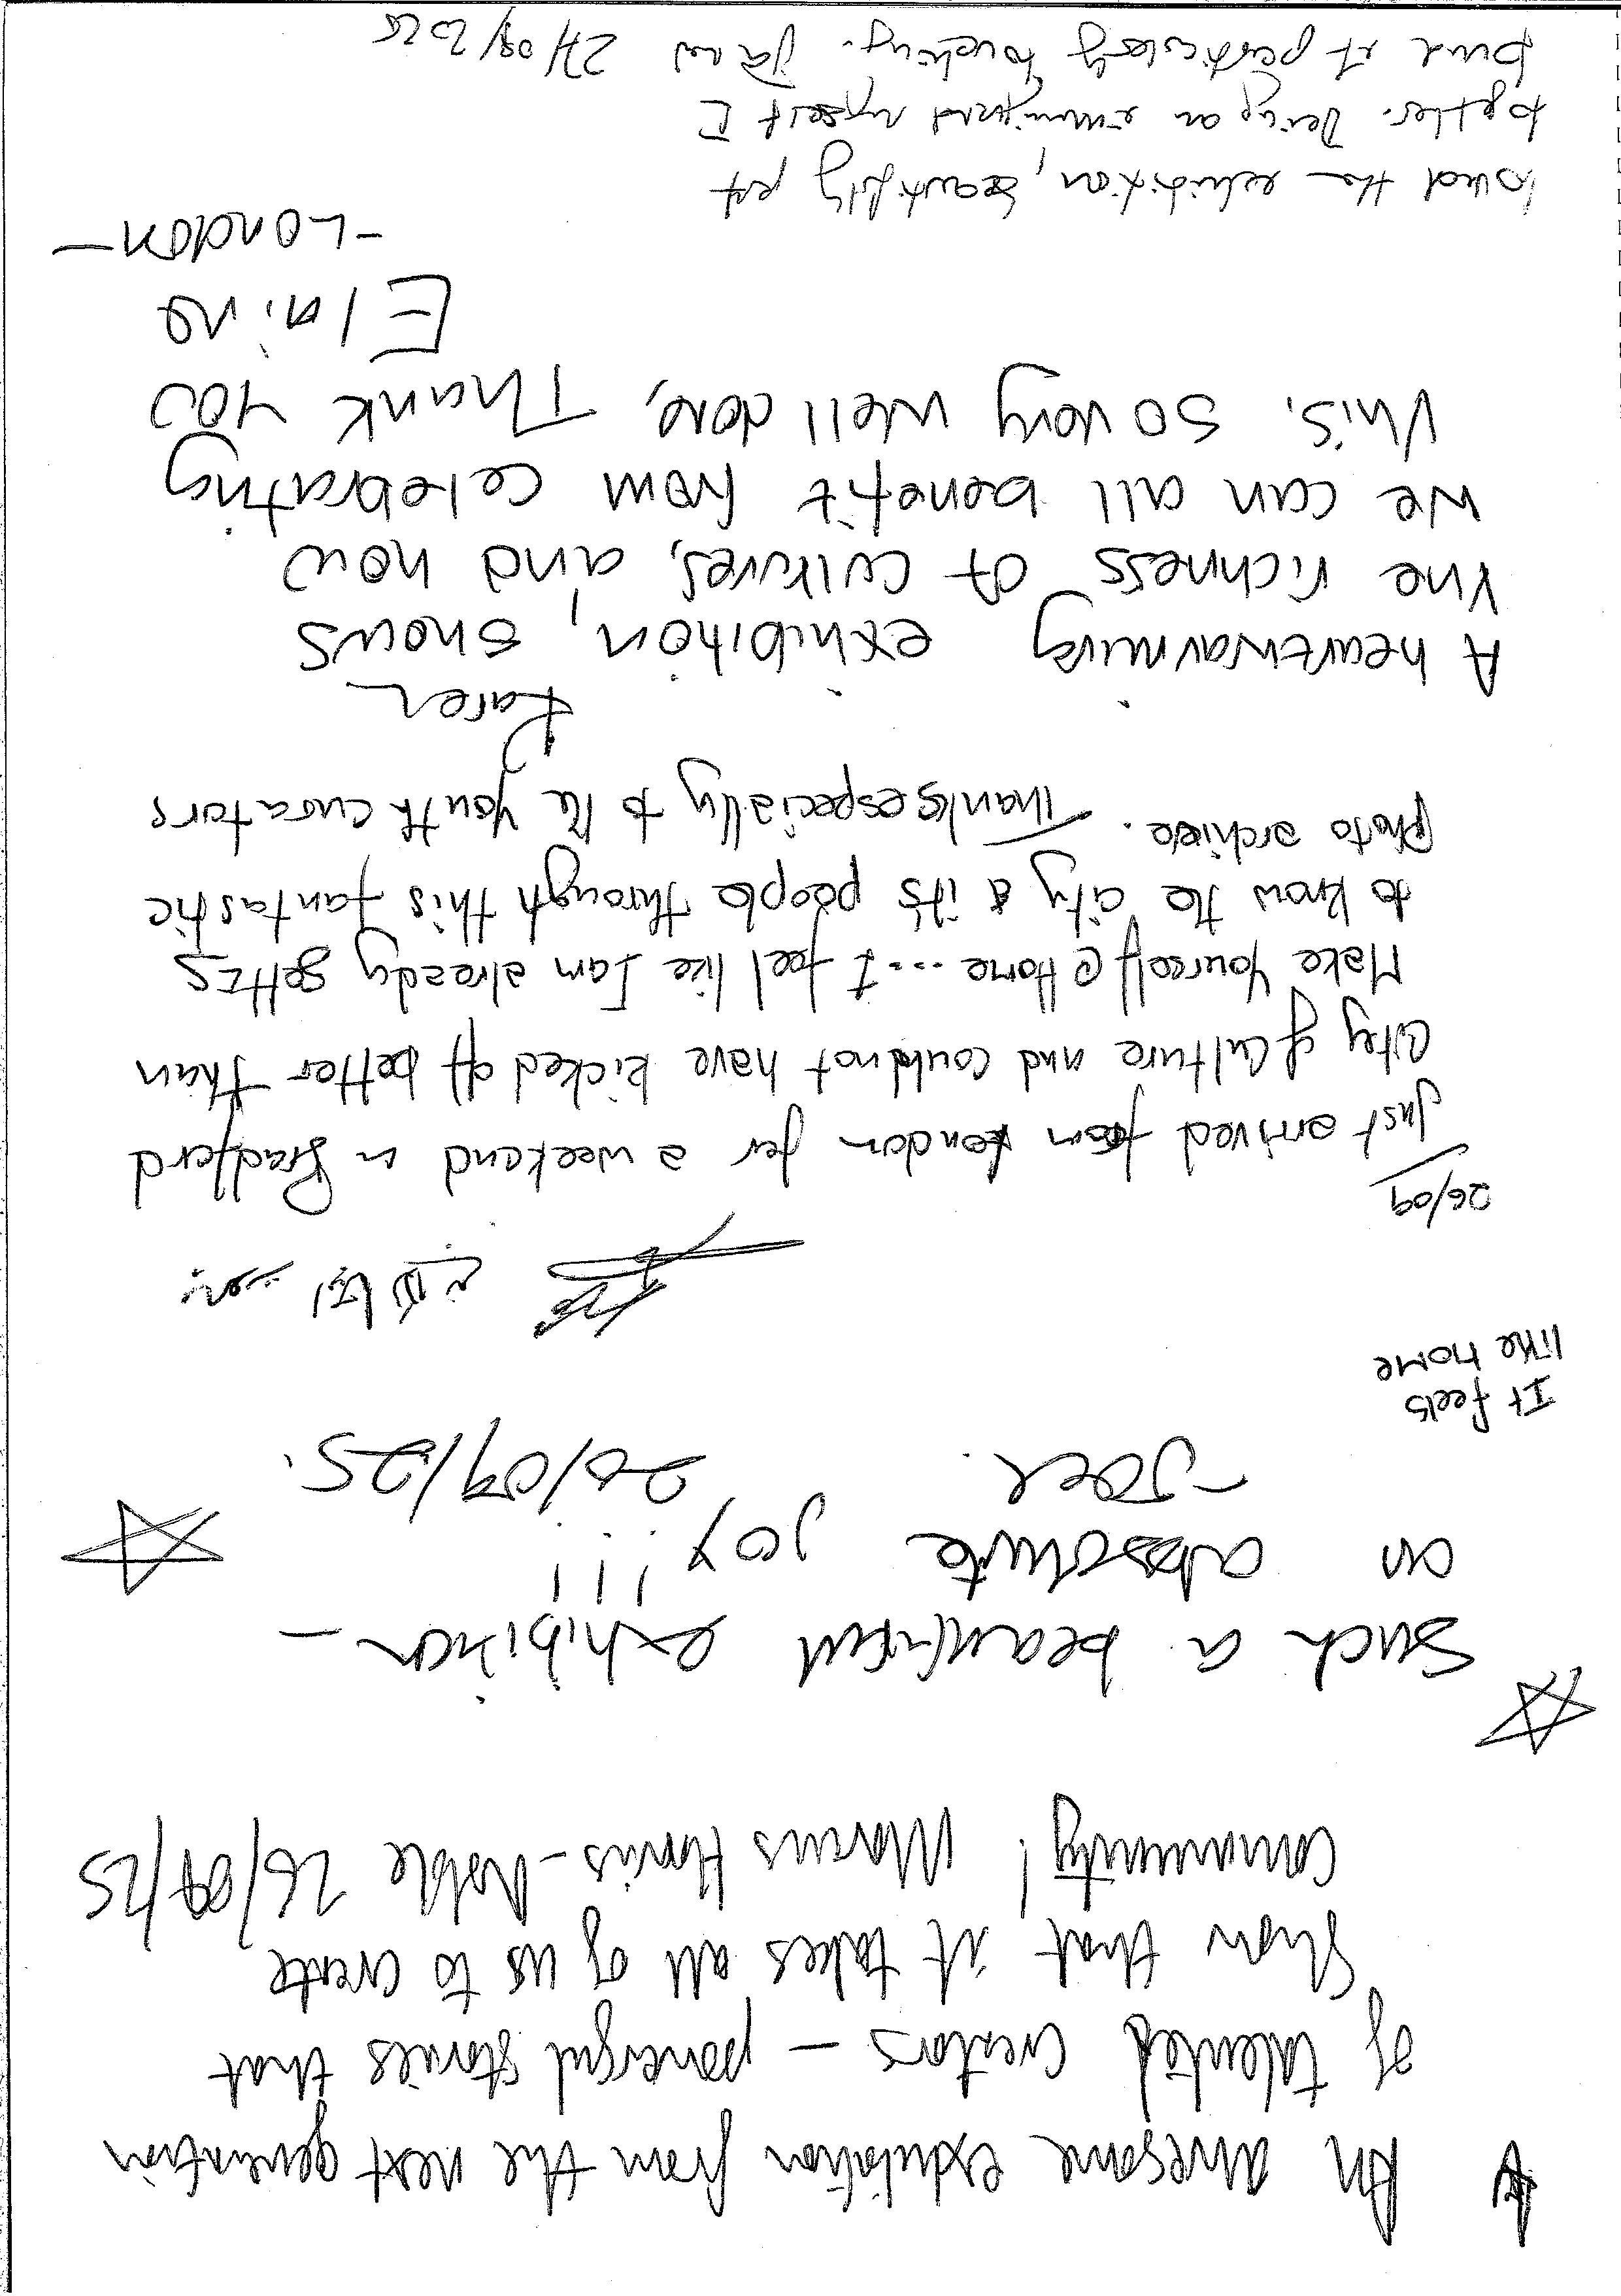 An awesome exhibition from the next generation
of talented creators – powerful stories that
show that it takes all of us to create
community! Marcus Harris-Noble 26/09/25
Such a beautiful exhibition –
an absolute joy!!!
- Joel. 26/09/25.
It feels
like home
26/09
Just arrived from London for a weekend in Bradford
City of Culture and could not have kicked off better than
Make Yourself @ Home... I feel like I am already getting
to know the city & it's people through this fantastic
photo archive. Thanks especially to the youth curators
Karen
A heartwarming exhibition, shows
the richness of cultures, and how
we can all benefit from celebrating
this. So very well done, Thank you
Elaine
- London -
loved the exhibition, beautifully put
together. Being an immigrant myself I
find it particularly touching. 27/09/2025